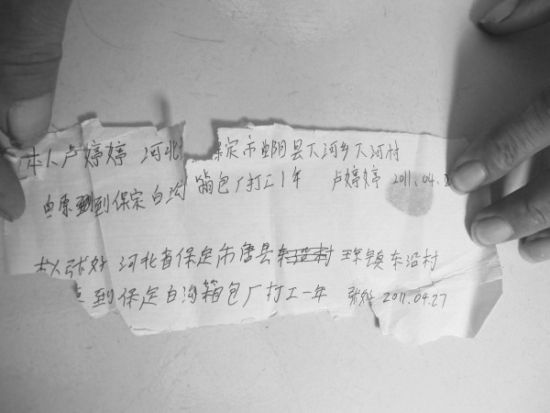 本人卢婷婷 河北 保定市曲阳县下河乡下河村
自愿到保定白沟箱包厂打工1年 卢婷婷 2011.04.2
本人张好 河北省保定市唐县 镇东沿村
到保定白沟箱包厂打工一年 张好 2011.04.27